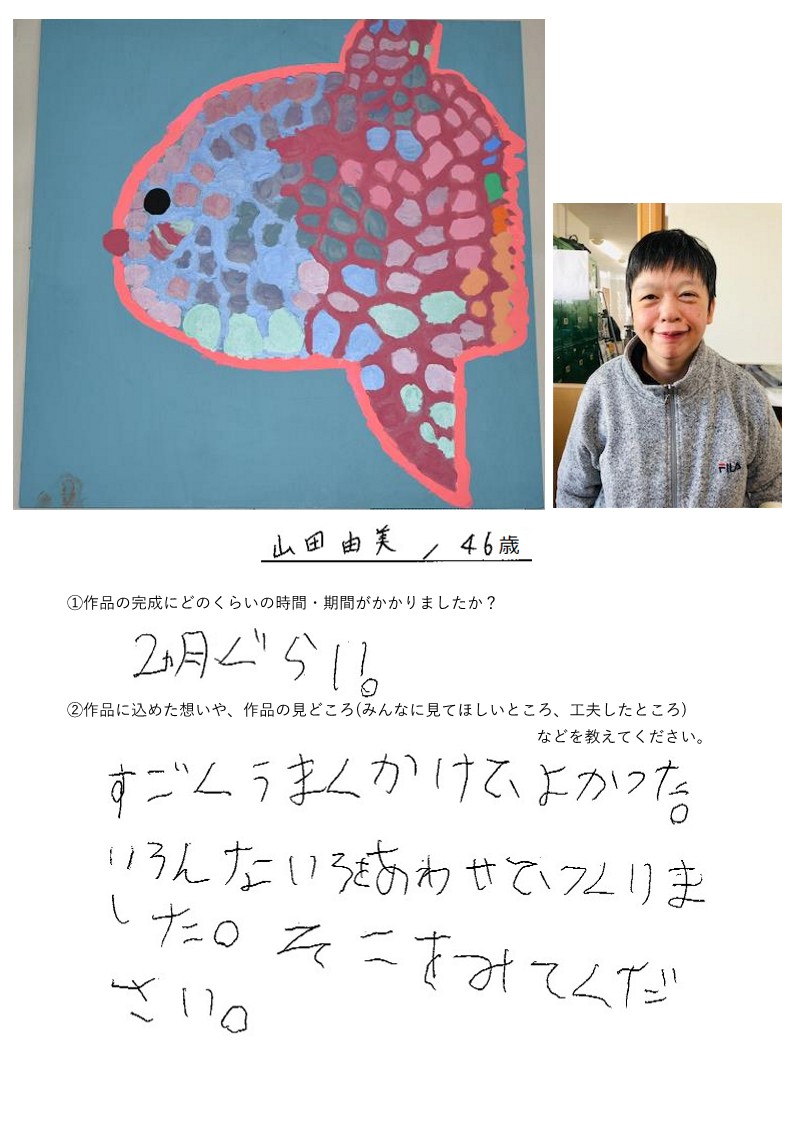 FILA
山田由美 / 46歳
①作品の完成にどのくらいの時間・期間がかかりましたか？
2ヵ月ぐらい。
②作品に込めた想いや、作品の見どころ(みんなに見てほしいところ、工夫したところ)
などを教えてください。
すごくうまくかけて、よかった。
いろんないろをあわせて、つくりま
した。そこをみてくだ
さい。